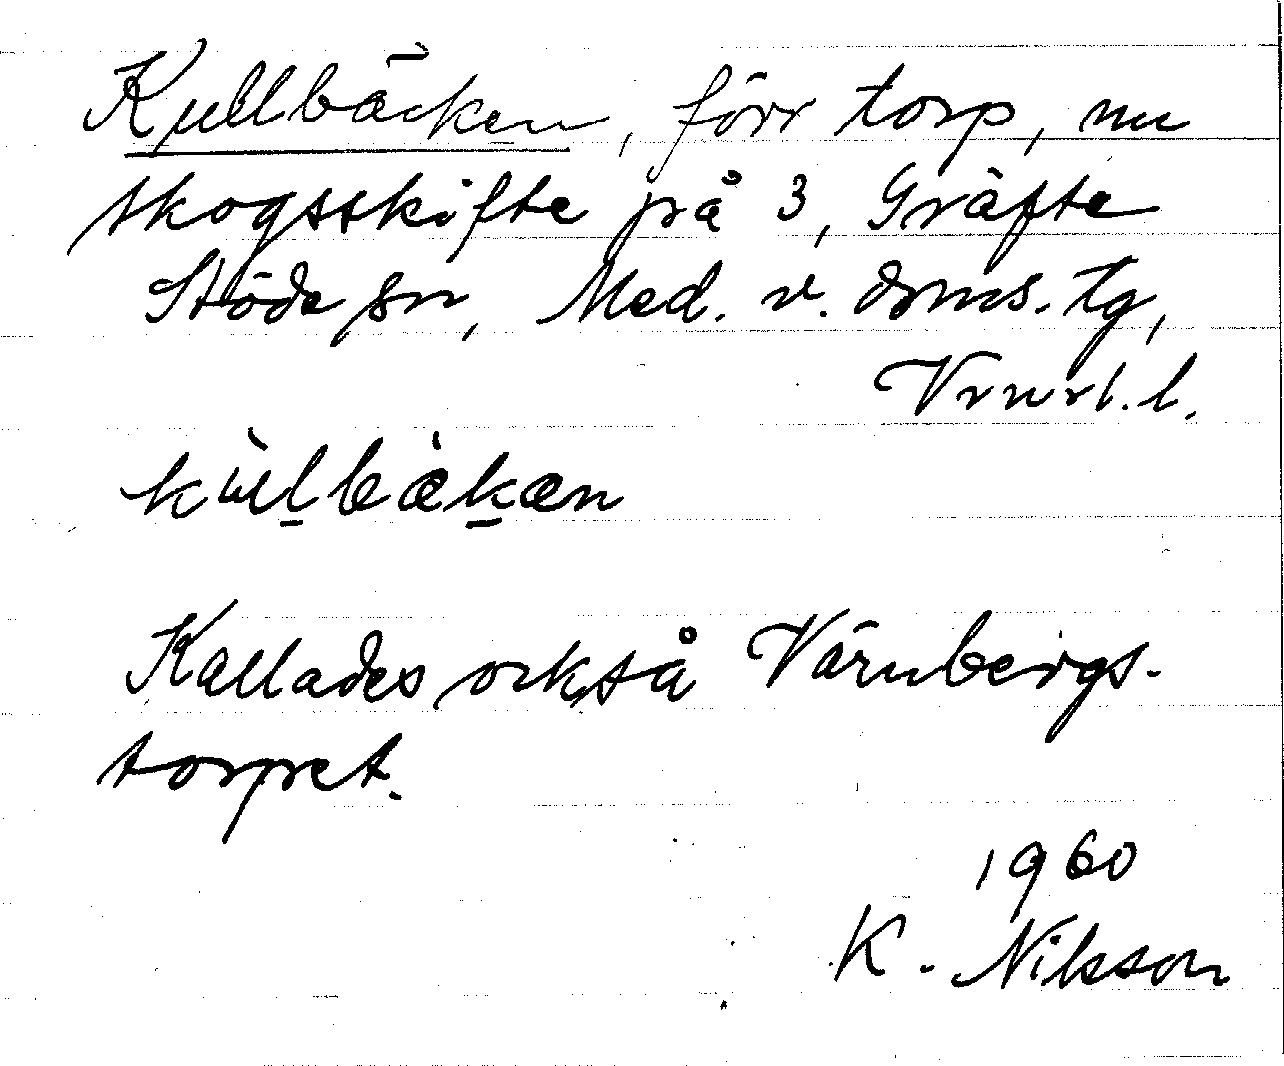 Kullbäcken, förr torp, nu
skogsskifte på 3, Gräfte
Stöde sn, Med. v. doms. tg,
Vrnrl. l.
kùllbàkæn
Kallades också Värnbergs-
torpet.
1960
K. Nilsson